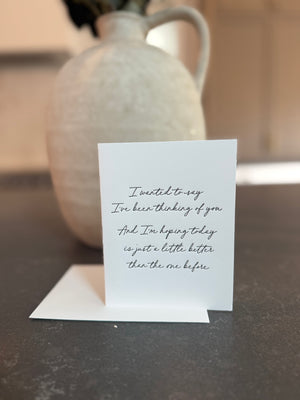 I wanted to say
I've been thinking of you
And I'm hoping today
is just a little better
than the one before